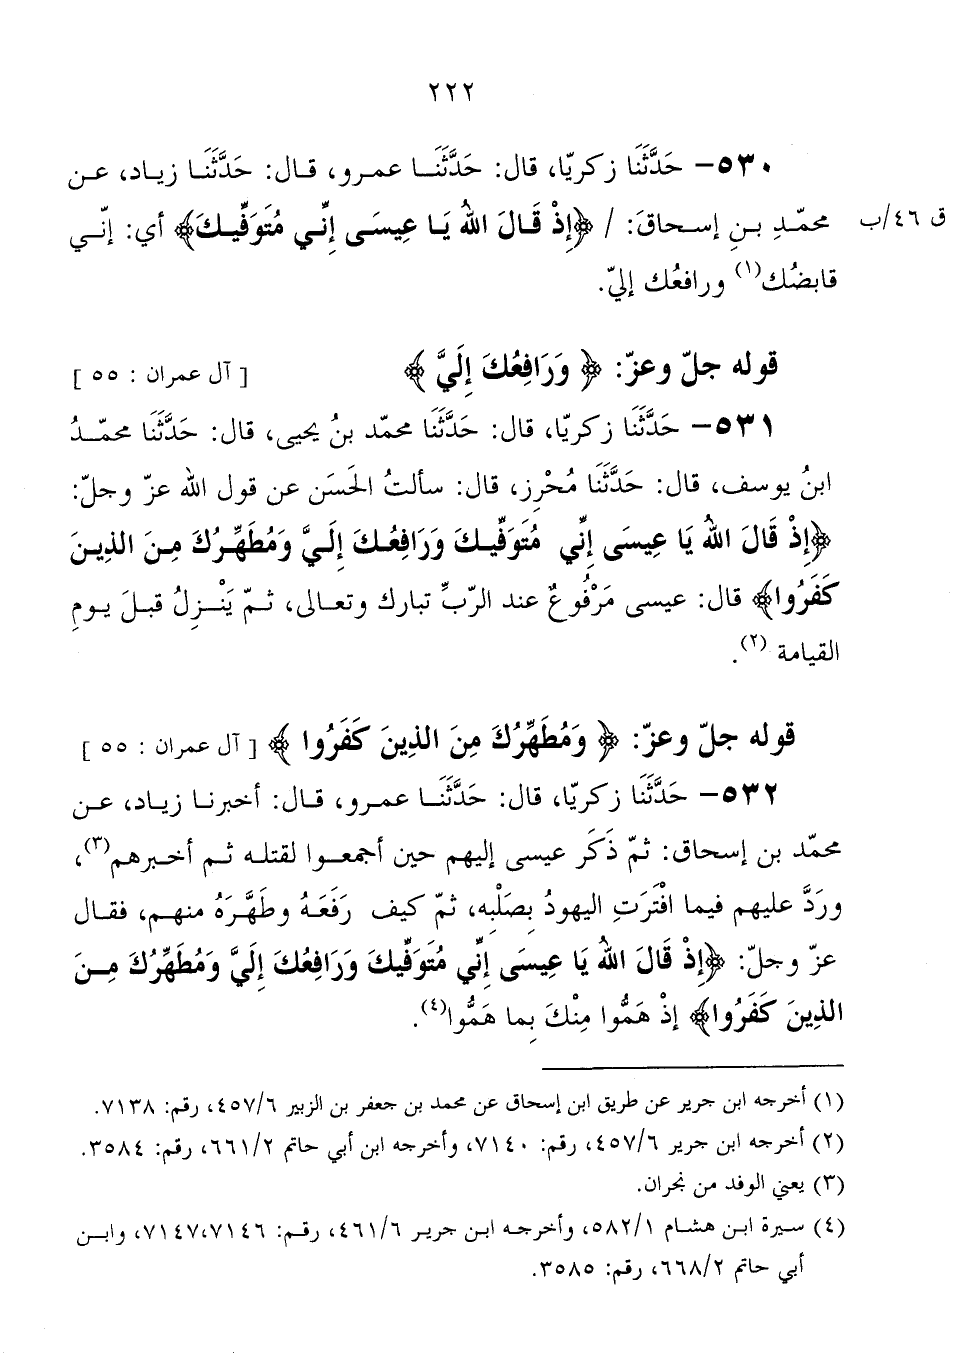 ٢٢٢
٥٣٠- حَدَّثَنَا زكريّا، قال: حَدَّثَنَا عمرو، قال: حَدَّثَنَا زياد، عن
ق ٤٦/ب
محمّدِ بنِ إسحاقَ: / ﴿إِذْ قَالَ اللهُ يَا عِيسَى إِنِّي مُتَوَفِّيكَ﴾ أي: إنّي
قابضُك(١) ورافعُك إليّ.
قوله جلّ وعزّ: ﴿ وَرَافِعُكَ إِلَيَّ ﴾ [ آل عمران : ٥٥ ]
٥٣١- حَدَّثَنَا زكريّا، قال: حَدَّثَنَا محمّد بنُ يحيى، قال: حَدَّثَنَا محمّدُ
ابنُ يوسف، قال: حَدَّثَنَا مُحْرِز، قال: سألتُ الحَسَن عن قول الله عزّ وجلّ:
﴿إِذْ قَالَ اللهُ يَا عِيسَى إِنِّي مُتَوَفِّيكَ وَرَافِعُكَ إِلَيَّ وَمُطَهِّرُكَ مِنَ الذِينَ
كَفَرُوا﴾ قال: عيسى مَرْفُوعٌ عند الرّبِّ تبارك وتعالى، ثمّ يَنْزِلُ قبلَ يومِ
القيامة (٢).
قوله جلّ وعزّ: ﴿ وَمُطَهِّرُكَ مِنَ الذِينَ كَفَرُوا ﴾ [ آل عمران : ٥٥ ]
٥٣٢- حَدَّثَنَا زكريّا، قال: حَدَّثَنَا عمرو، قال: أخبرنا زياد، عن
محمّد بن إسحاق: ثمّ ذَكَر عيسى إليهم حين أجمعوا لقتله ثم أخبرهم(٣)،
وردَّ عليهم فيما افْتَرَتِ اليهودُ بِصَلْبِه، ثمّ كيف رَفَعَهُ وطَهَّرَهُ منهم، فقال
عزّ وجلّ: ﴿إِذْ قَالَ اللهُ يَا عِيسَى إِنِّي مُتَوَفِّيكَ وَرَافِعُكَ إِلَيَّ وَمُطَهِّرُكَ مِنَ
الذِينَ كَفَرُوا﴾ إِذْ هَمُّوا مِنْكَ بِما هَمُّوا(٤).
(١) أخرجه ابن جرير عن طريق ابن إسحاق عن محمد بن جعفر بن الزبير ٤٥٧/٦، رقم: ٧١٣٨.
(٢) أخرجه ابن جرير ٤٥٧/٦، رقم: ٧١٤٠، وأخرجه ابن أبي حاتم ٦٦١/٢، رقم: ٣٥٨٤.
(٣) يعني الوفد من نجران.
(٤) سيرة ابن هشام ٥٨٢/١، وأخرجه ابن جرير ٤٦١/٦، رقم: ٧١٤٧،٧١٤٦، وابن
أبي حاتم ٦٦٨/٢، رقم: ٣٥٨٥.